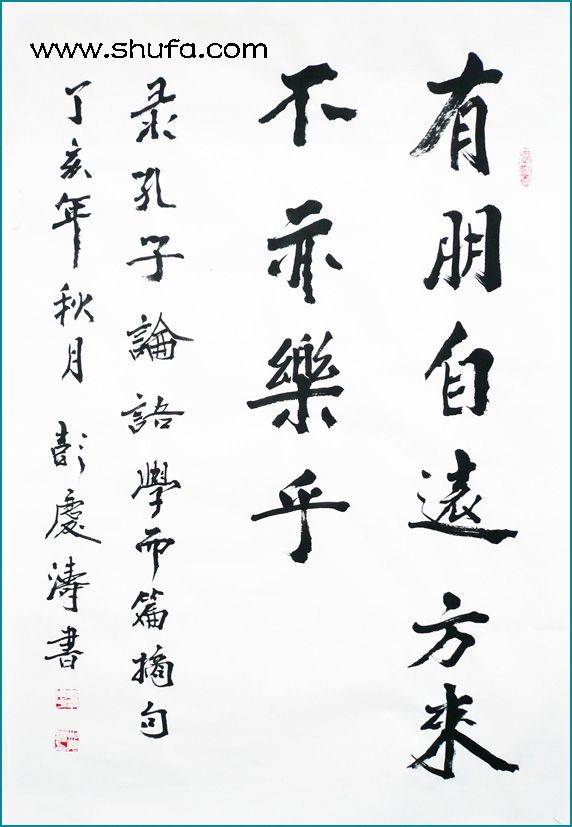 www.shufa.com
有朋自遠方來
不亦樂乎
录孔子論語學而篇摘句
丁亥年秋月 彭慶濤書